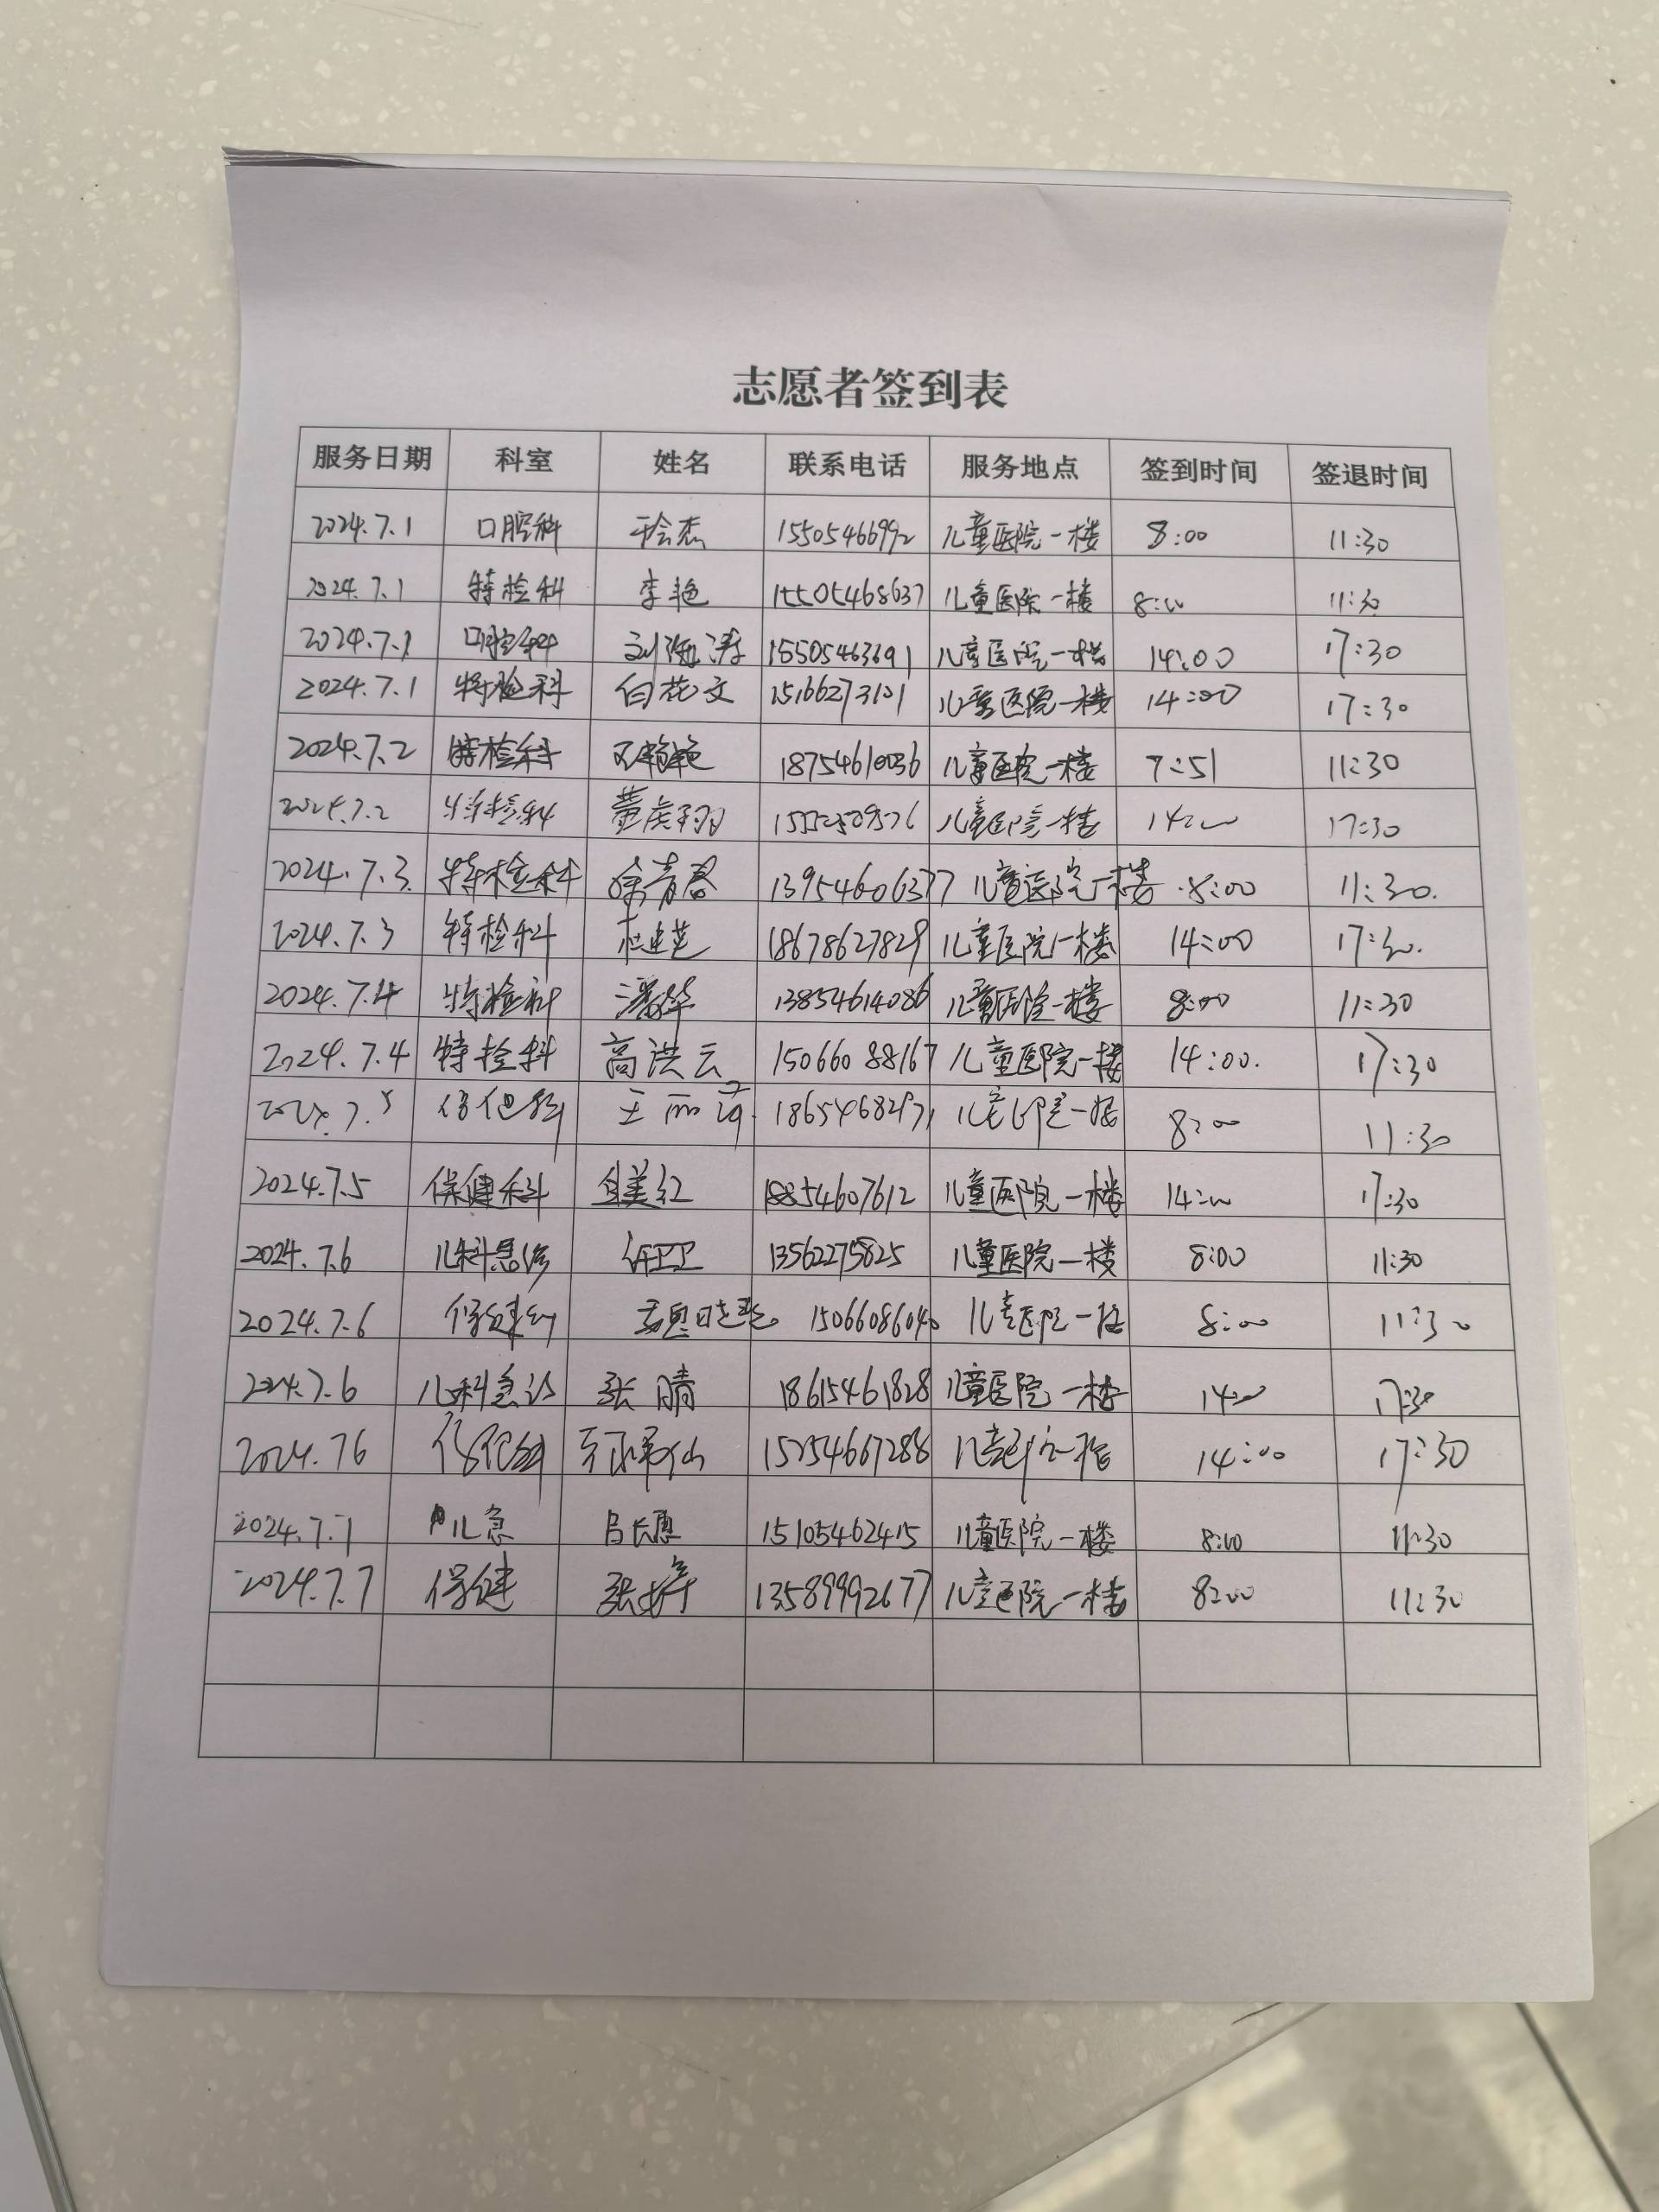 志愿者签到表
服务日期 科室 姓名 联系电话 服务地点 签到时间 签退时间
2024.7.1 口腔科 15505466992 儿童医院一楼 8:00 11:30
2024.7.1 特检科 李艳 15505468637 儿童医院一楼 8:00 11:30
2024.7.1 口腔科 15505463691 儿童医院一楼 14:00 17:30
2024.7.1 特检科 白花文 15166273101 儿童医院一楼 14:00 17:30
2024.7.2 特检科 18754610036 儿童医院一楼 7:51 11:30
2024.7.2 特检科 儿童医院一楼 14:00 17:30
2024.7.3 特检科 徐青春 13954606377 儿童医院一楼 8:00 11:30.
2024.7.3 特检科 18678627829 儿童医院一楼 14:00 17:30.
2024.7.4 特检科 13854614086 儿童医院一楼 8:00 11:30
2024.7.4 特检科 高洪云 15066088167 儿童医院一楼 14:00. 17:30
2024.7.5 保健科 儿童医院一楼 8:00 11:30
2024.7.5 保健科 18854607612 儿童医院一楼 14:00 17:30
2024.7.6 儿科急诊 许卫卫 13562275825 儿童医院一楼 8:00 11:30
2024.7.6 保健科 15066086040 儿童医院一楼 8:00 11:30
2024.7.6 儿科急诊 张晴 18615461828 儿童医院一楼 14:00 17:30
2024.7.6 保健科 15254667288 儿童医院一楼 14:00 17:30
2024.7.7 儿急 吕长惠 15105462415 儿童医院一楼 8:00 11:30
2024.7.7 保健 张婷 13589992677 儿童医院一楼 8:00 11:30